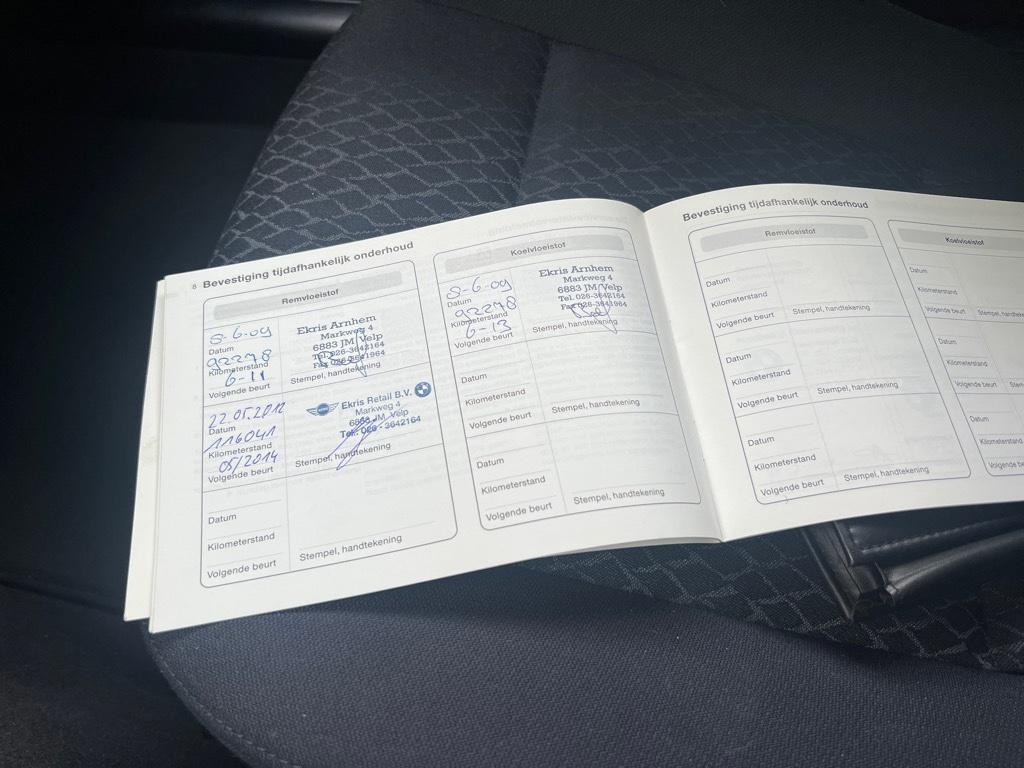 8 Bevestiging tijdafhankelijk onderhoud
Remvloeistof
8-6-09
Datum
92278
Kilometerstand
6-11
Volgende beurt
Ekris Arnhem
Markweg 4
6883 JM Velp
Tel. 026-3642164
Fax 026-3641964
Stempel, handtekening
22.05.2012
Datum
116041
Kilometerstand
05/2014
Volgende beurt
Ekris Retail B.V.
Markweg 4
6883 JM Velp
Tel.: 026 - 3642164
Stempel, handtekening
Datum
Kilometerstand
Volgende beurt
Stempel, handtekening
Koelvloeistof
8-6-09
Datum
92278
Kilometerstand
6-13
Volgende beurt
Ekris Arnhem
Markweg 4
6883 JM Velp
Tel. 026-3642164
Fax 026-3641964
Stempel, handtekening
Datum
Kilometerstand
Volgende beurt
Stempel, handtekening
Datum
Kilometerstand
Volgende beurt
Stempel, handtekening
Bevestiging tijdafhankelijk onderhoud
Remvloeistof
Datum
Kilometerstand
Volgende beurt
Stempel, handtekening
Datum
Kilometerstand
Volgende beurt
Stempel, handtekening
Datum
Kilometerstand
Volgende beurt
Stempel, handtekening
Koelvloeistof
Datum
Kilometerstand
Volgende beurt
Stempel, handte
Datum
Kilometerstand
Volgende beurt
Ste
Datum
Kilometerstand
Volgende beurt